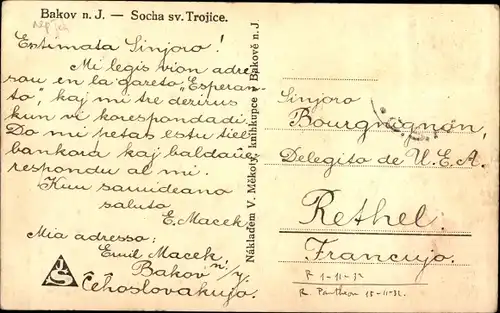 Bakov n. J. — Socha sv. Trojice.
Estimata Sinjoro!
Mi legis vian adre
son en la gazeto „Esperan-
to", kaj mi tre dezirus
kun vi korespondadi.
Do mi petas estu tiel
bonkora kaj baldaŭ
respondu al mi.
Kun samideana
saluto
E. Macek
Mia adresso:
Emil Macek,
Bakov n/J.
Čehoslovakujo.
JS
Nákladem V. Měkoty, knihkupce v Bakově n. J.
Sinjoro
Bourgnignon,
Delegito de U.E.A.
Rethel.
Francujo.
R 1-11-32
R. Panthéon 15-11-32.